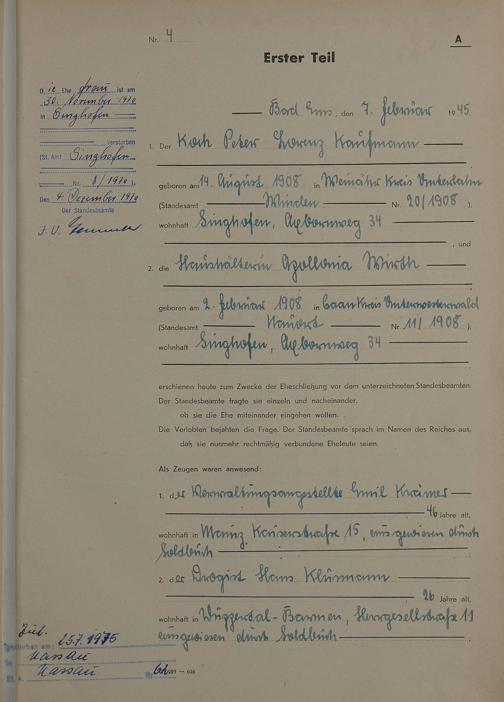 Nr. 4
A
Erster Teil
Die Ehe frau ist am
30. November 1970
in Singhofen
verstorben
(St. Amt Singhofen
Nr. 8/1970).
Den 4. Dezember 1970
Der Standesbeamte
I. V.
Bad Ems, den 7. Februar 1945
1. Der Koch Peter Lorenz Kaufmann
geboren am 14. August 1908 in Weinähr Kreis Unterlahn
(Standesamt Winden Nr. 20/1908),
wohnhaft Singhofen, 34
, und
2. die Haushälterin Apollonia Wirth
geboren am 2. Februar 1908 in Caan Kreis Unterwesterwald
(Standesamt Nauort Nr. 11/1908),
wohnhaft Singhofen, 34
erschienen heute zum Zwecke der Eheschließung vor dem unterzeichneten Standesbeamten.
Der Standesbeamte fragte sie einzeln und nacheinander,
ob sie die Ehe miteinander eingehen wollen.
Die Verlobten bejahten die Frage. Der Standesbeamte sprach im Namen des Reiches aus,
daß sie nunmehr rechtmäßig verbundene Eheleute seien.
Als Zeugen waren anwesend:
1. der Verwaltungsangestellte Emil Krämer
46 Jahre alt,
wohnhaft in Mainz, Kaiserstraße 15, ausgewiesen durch
Soldbuch
2. der Drogist Hans Klürmann
26 Jahre alt,
wohnhaft in Wuppertal-Barmen, Herzgesellstraße 11
ausgewiesen durch Soldbuch
gestorben am: 25.7.1975
in Nassau
St. A. Nassau Nr.